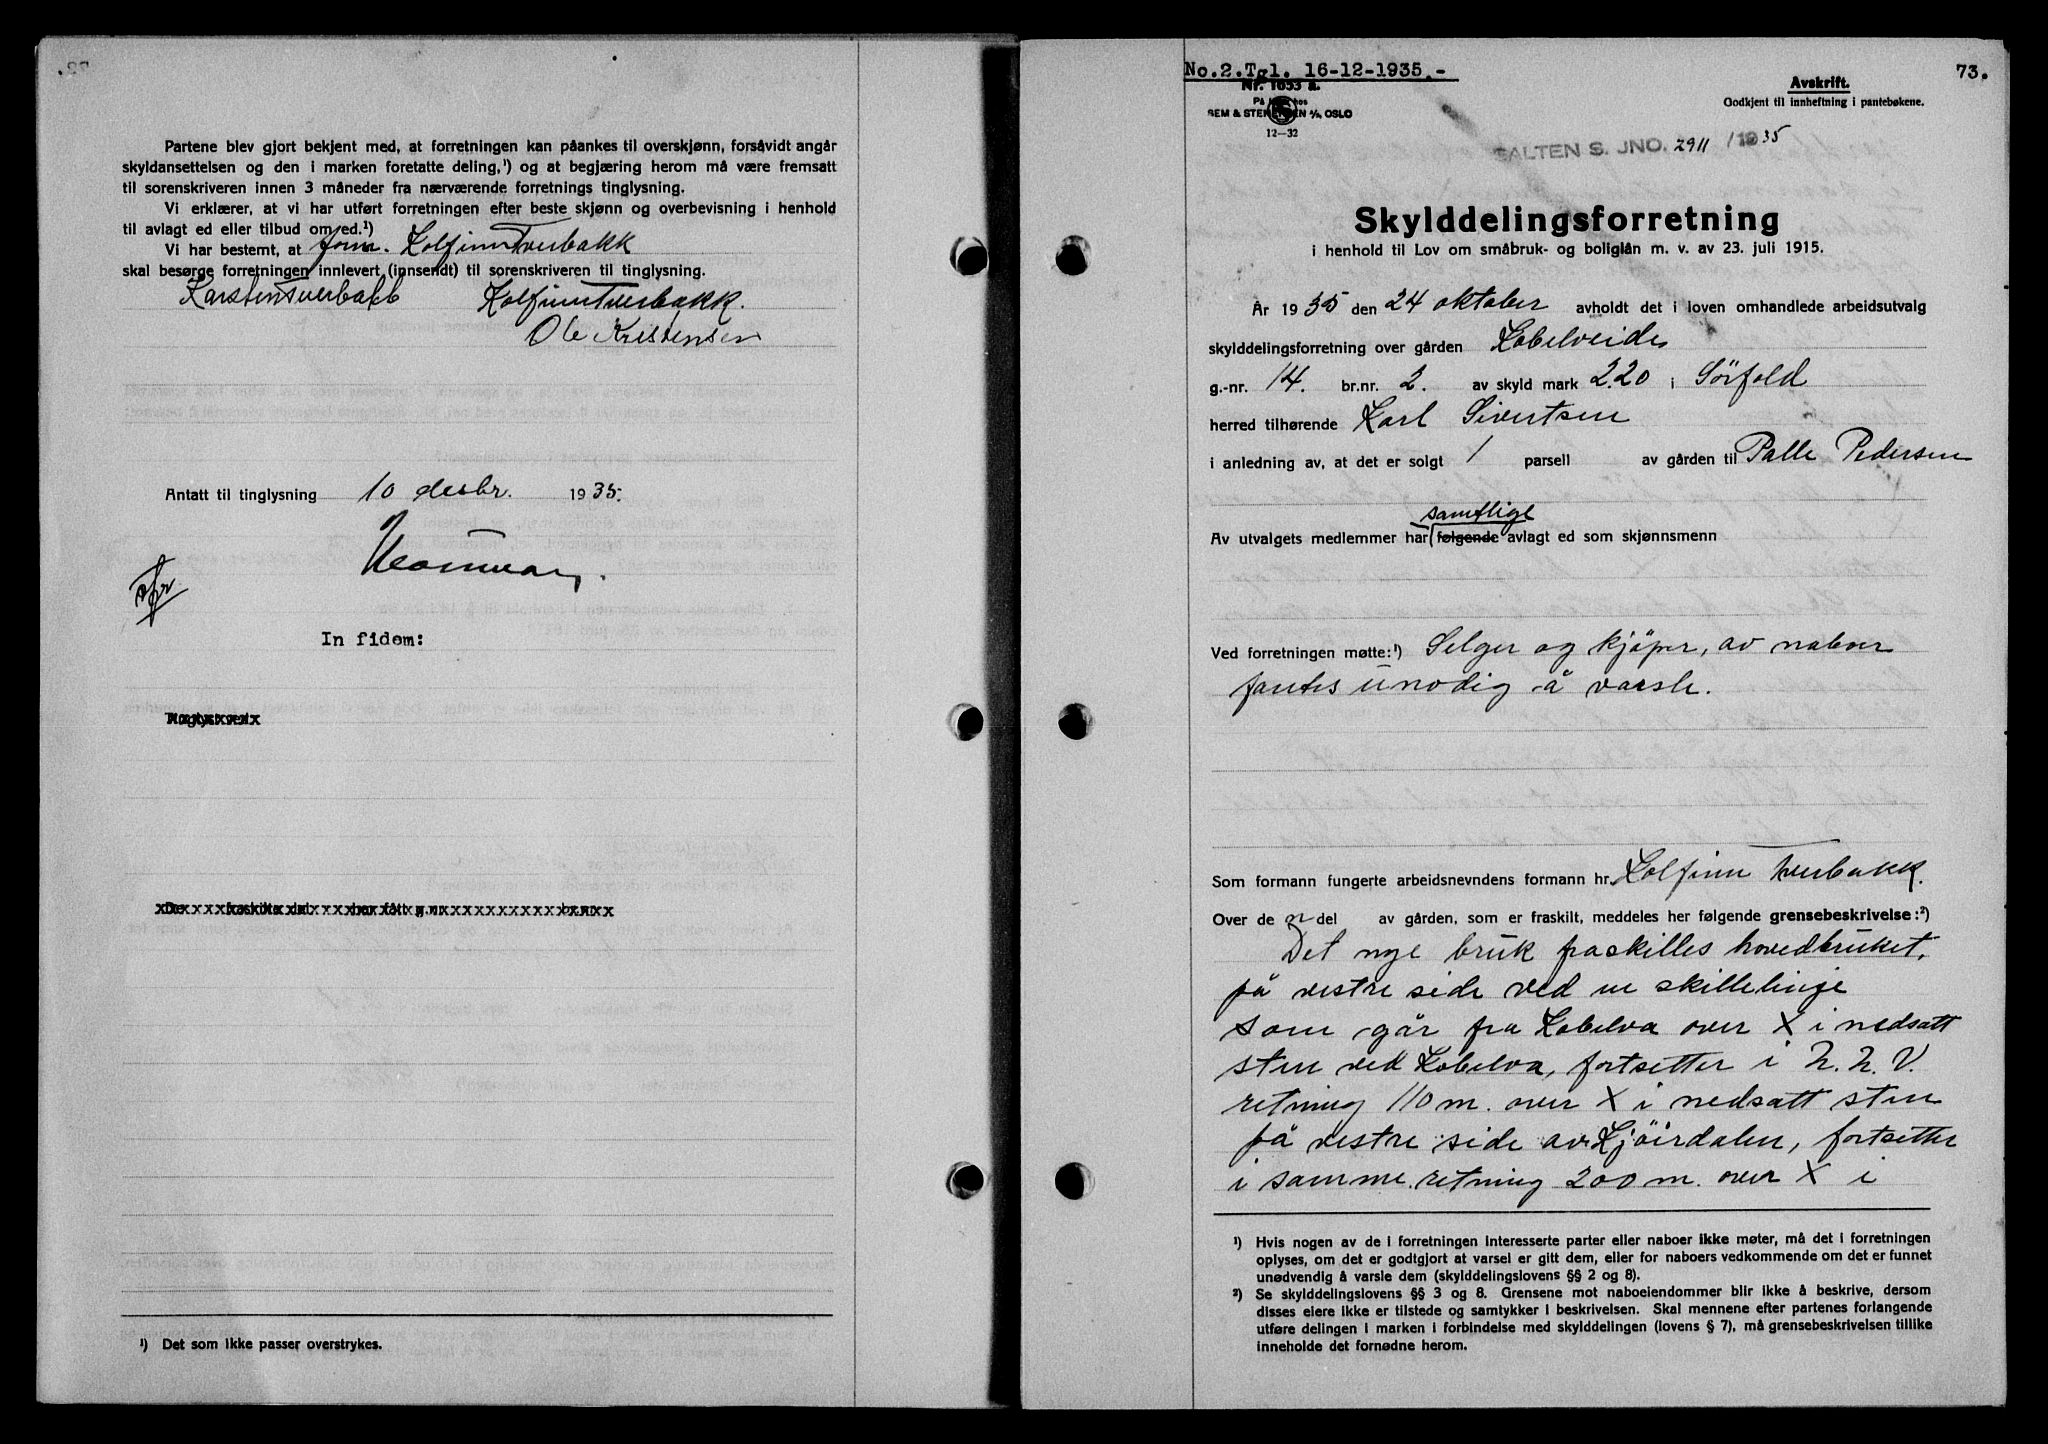 Partene blev gjort bekjent med, at forretningen kan påankes til overskjønn, forsåvidt angår
skyldansettelsen og den i marken foretatte deling,¹) og at begjæring herom må være fremsatt
til sorenskriveren innen 3 måneder fra nærværende forretnings tinglysning.
Vi erklærer, at vi har utført forretningen efter beste skjønn og overbevisning i henhold
til avlagt ed eller tilbud om ed.¹)
Vi har bestemt, at form. Kolfinn Tverbakk
skal besørge forretningen innlevert (innsendt) til sorenskriveren til tinglysning.
Karsten Tverbakk Kolfinn Tverbakk.
Ole Kristensen
Antatt til tinglysning 10 desbr. 1935.
In fidem:
¹) Det som ikke passer overstrykes.
No.2.Tgl. 16-12-1935.-
73.
Nr. 1653 a.
På lager hos
SEM & STENERSEN A/S, OSLO
12—32
Avskrift.
Godkjent til innheftning i pantebøkene.
SALTEN S. JNO. 2911 /1935
Skylddelingsforretning
i henhold til Lov om småbruk- og boliglån m. v. av 23. juli 1915.
År 1935 den 24 oktober avholdt det i loven omhandlede arbeidsutvalg
skylddelingsforretning over gården Kobelveide
g.-nr. 14. br.nr. 2. av skyld mark 2.20 i Sørfold
herred tilhørende Karl Sivertsen
i anledning av, at det er solgt 1 parsell av gården til Palle Pedersen
samtlige
Av utvalgets medlemmer har følgende avlagt ed som skjønnsmenn
Ved forretningen møtte:¹) Selger og kjøper, av naboer
fantes unødig å varsle.
Som formann fungerte arbeidsnevndens formann hr. Kolfinn Tverbakk.
Over de n del av gården, som er fraskilt, meddeles her følgende grensebeskrivelse:²)
Det nye bruk fraskilles hovedbruket,
på vestre side ved en skillelinje
som går fra Kobelva over X i nedsatt
sten ved Kobelva, fortsetter i N. N. V.
retning 110 m. over X i nedsatt sten
på vestre side av Kjøirdalen, fortsetter
i samme retning 200 m. over X i
¹) Hvis nogen av de i forretningen interesserte parter eller naboer ikke møter, må det i forretningen
oplyses, om det er godtgjort at varsel er gitt dem, eller for naboers vedkommende om det er funnet
unødvendig å varsle dem (skylddelingslovens §§ 2 og 8).
²) Se skylddelingslovens §§ 3 og 8. Grensene mot naboeiendommer blir ikke å beskrive, dersom
disses eiere ikke er tilstede og samtykker i beskrivelsen. Skal mennene efter partenes forlangende
utføre delingen i marken i forbindelse med skylddelingen (lovens § 7), må grensebeskrivelsen tillike
inneholde det fornødne herom.